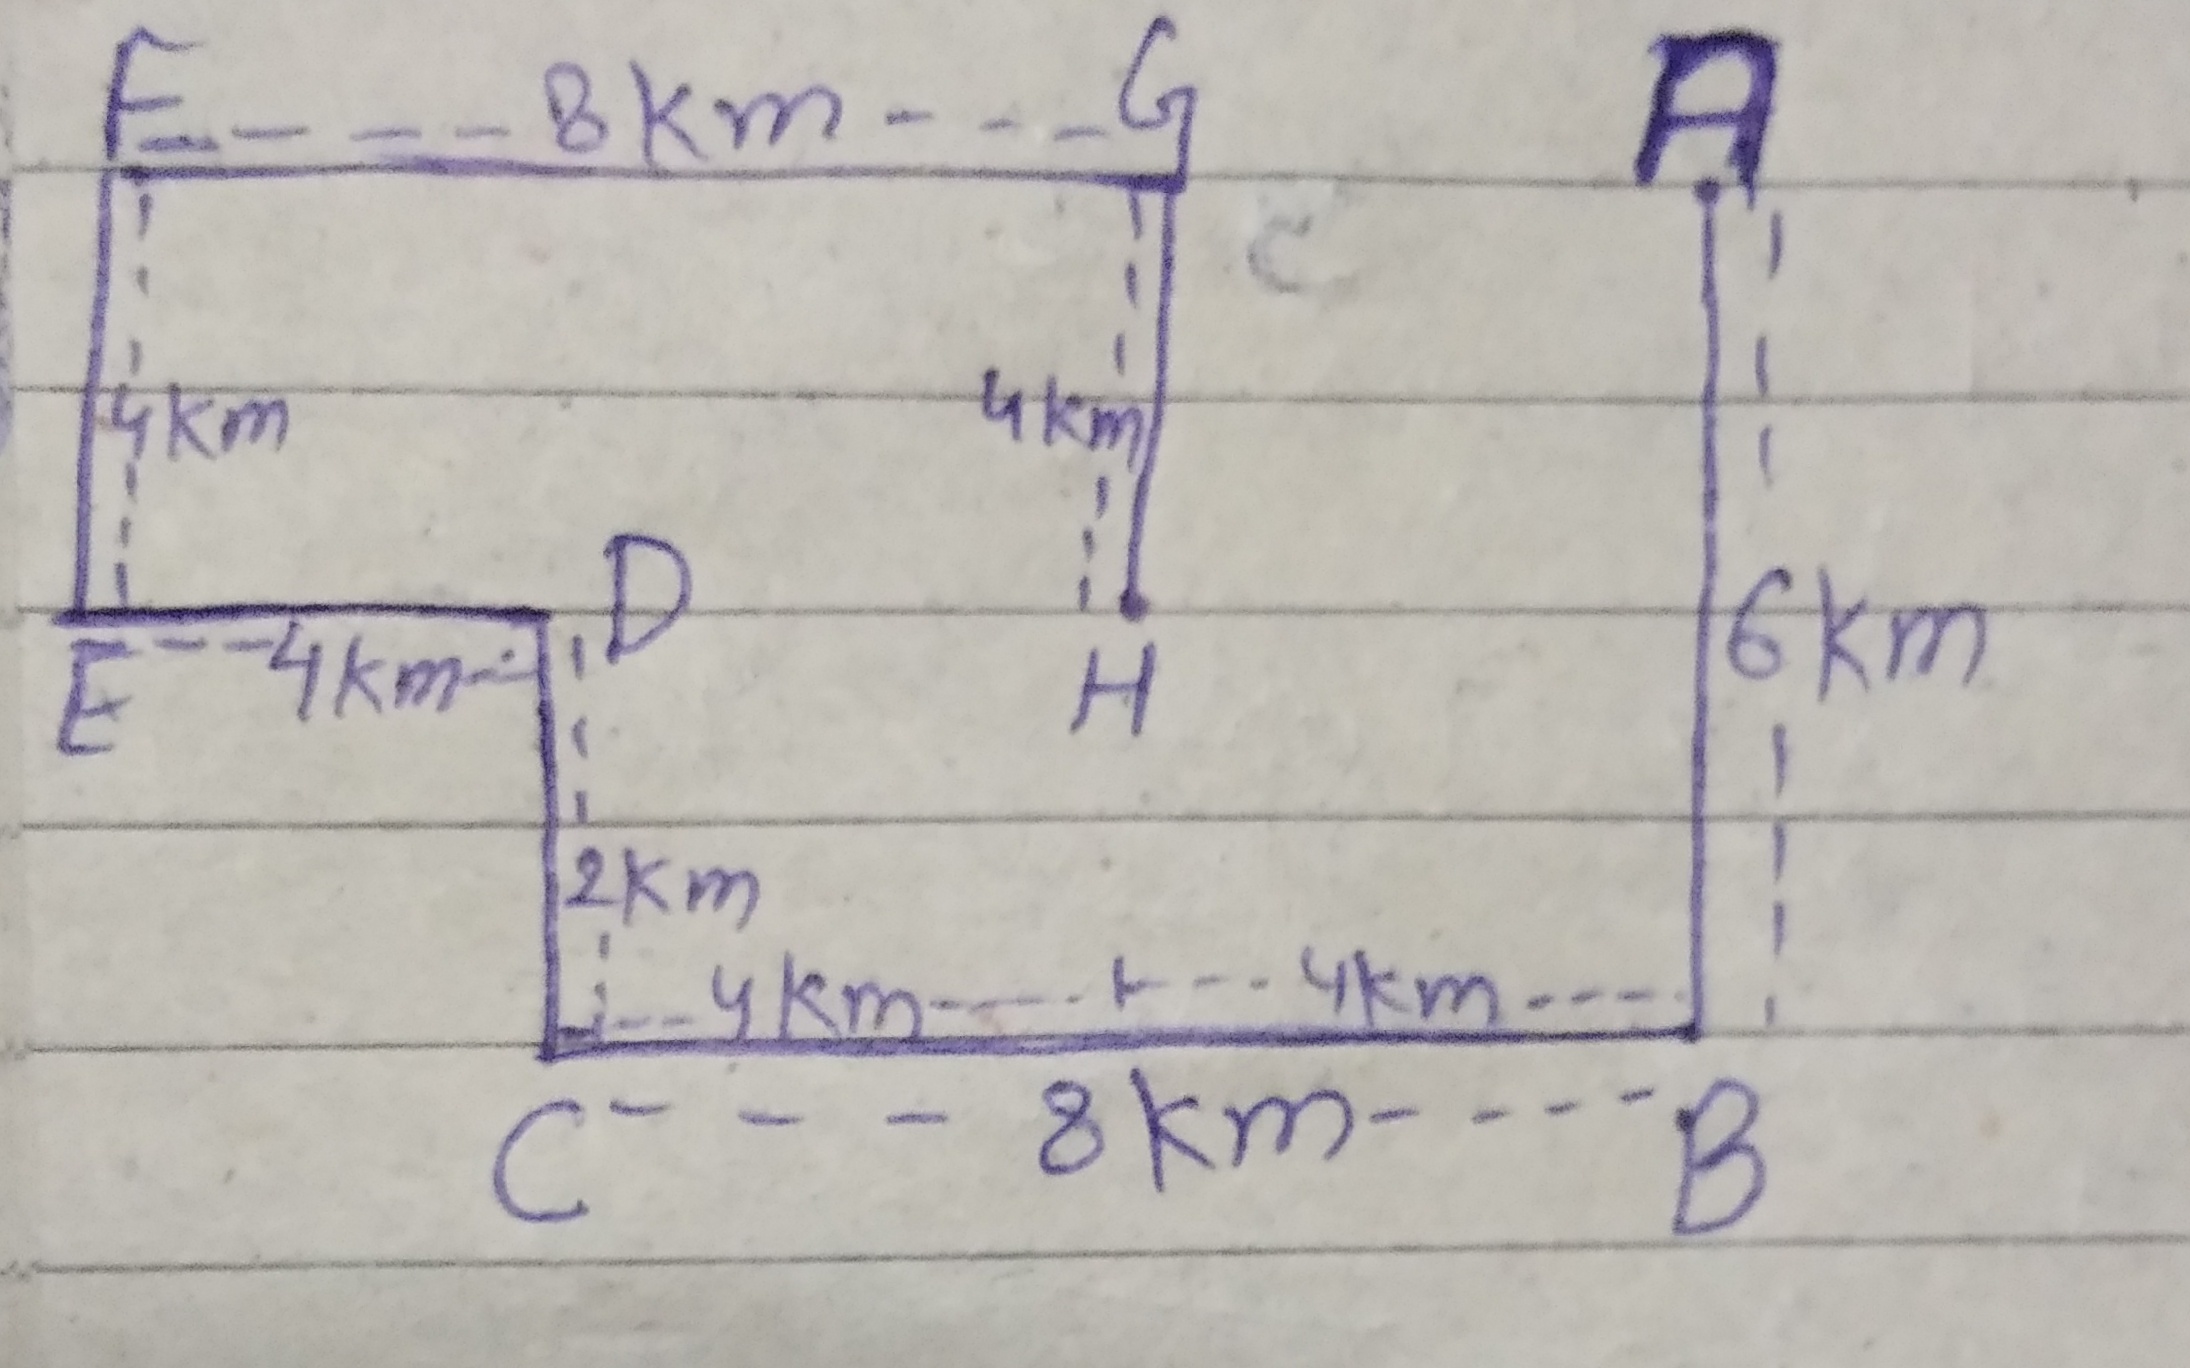 F 8km G A
C
4km 4km
D 6km
E 4km H
2km
4km 4km
C 8km B